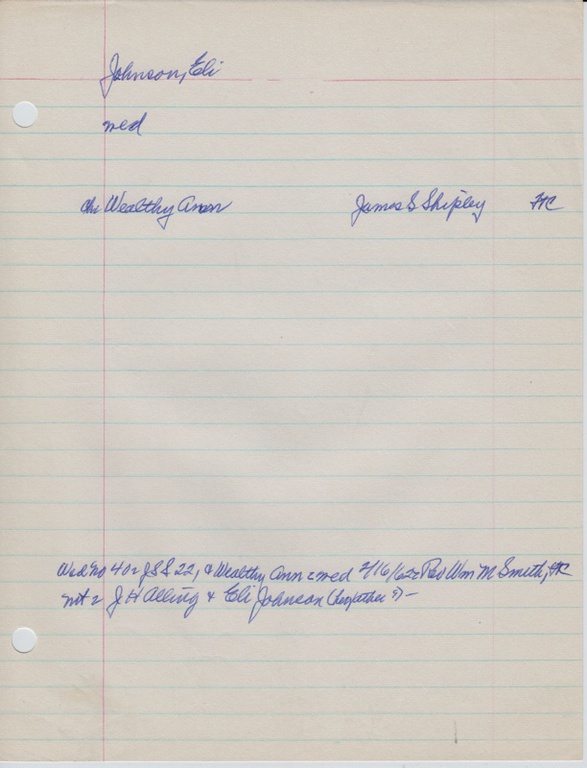 Johnson, Eli
med
ch: Wealthy Ann James S Shipley HC
Wed no 40 2 JSS 22, & Wealthy Ann 2 med 2/16/62 2 Rev Wm M Smith, HC
wit 2 J H Alling & Eli Johnson (her father?) –